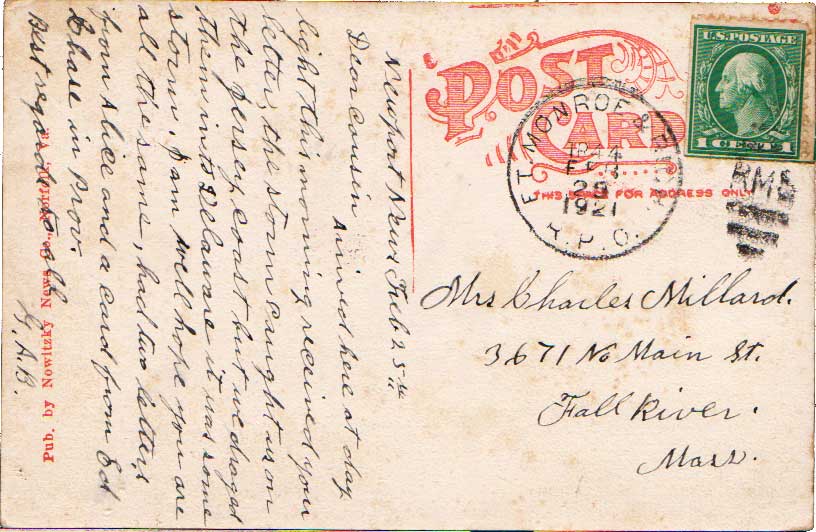 Newport News Feb 25th
Dear Cousin
Arrived here at day
light this morning received your
letter, the storm caught us on
the Jersey coast but we draged
them into Delaware it was some
storm. I am well hope you are
all the same, had two letters
from Alice and a card from Ed
Chase in Prov.
Best regards to all
G. A. B.
Pub. by Nowitzky News Co., Norfolk, Va.
POST
CARD
THIS SPACE FOR ADDRESS ONLY
FT. MONROE &
TR 44
FEB
25
1921
R.P.O.
RMS
U.S. POSTAGE
1 CENT 1
Mrs Charles Millard.
3671 No Main St.
Fall River.
Mass.